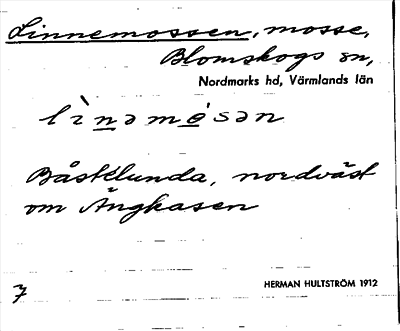 Linnemossen, mosse,
Blomskogs sn,
Nordmarks hd, Värmlands län
lìnəmósən
Båstelunda, nordväst
om Ängkasen
7
HERMAN HULTSTRÖM 1912